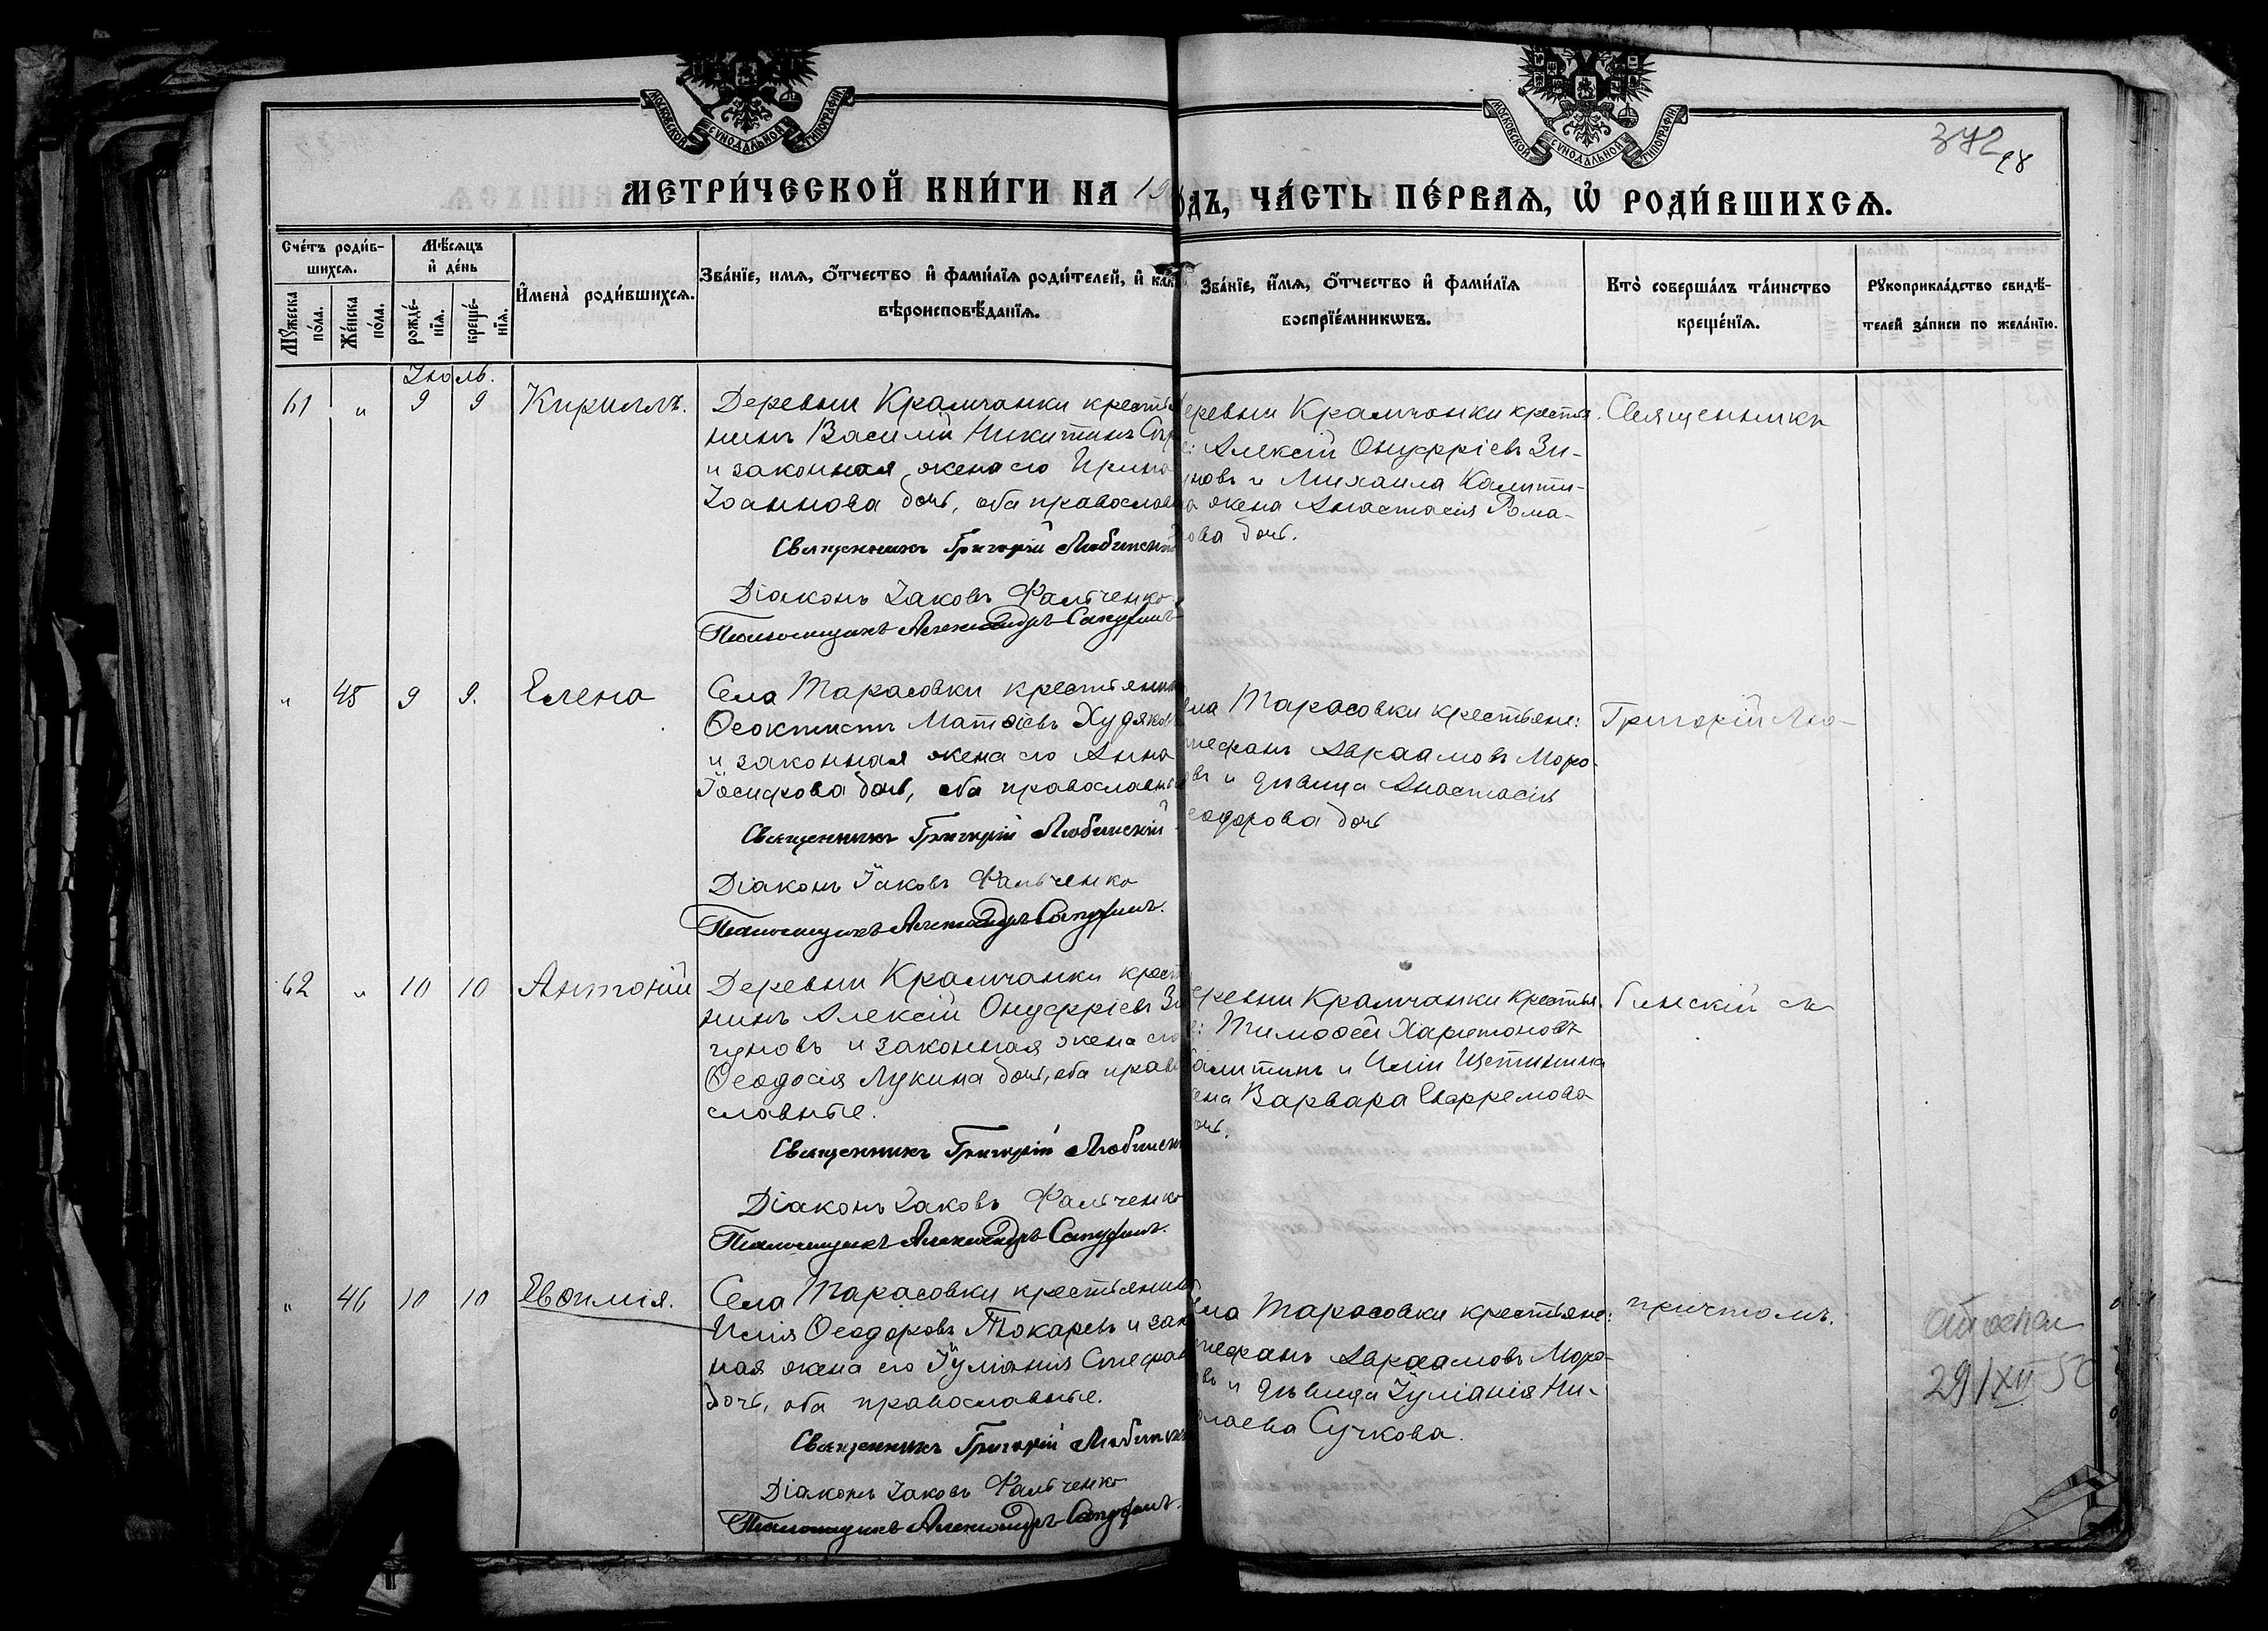 МОСКОВСКОЙ СУНОДАЛЬНОЙ ТИПОГРАФІИ
МОСКОВСКОЙ СУНОДАЛЬНОЙ ТИПОГРАФІИ
372
28
МЕТРИ́ЧЕСКОЙ КНИ́ГИ НА 19
одъ, ЧА́СТЬ ПЕ́РВАѦ, Ѡ҆ РОДИ́ВШИХСѦ.
Сче́тъ роди́в-
шихсѧ.
Мѹ́жеска по́ла.
Же́нска по́ла.
Мѣ́сѧцъ
и҆ де́нь
рожде́-
нїѧ.
креще́-
нїѧ.
И҆мена̀ роди́вшихсѧ.
Зва́нїе, имѧ, ѻ҆́тчество и҆ фами́лїѧ роди́телей, и҆ как
вѣроисповѣ́данїѧ.
Зва́нїе, и҆́мѧ, ѻ҆́тчество и҆ фами́лїѧ
воспрїе́мникѡвъ.
Кто̀ соверша́лъ та́инство
креще́нїѧ.
Рѹкоприкла́дство свидѣ́-
телей за́писи по жела́нїю.
Іюль.
61 " 9 9 Кириллъ.
Деревни Крамчанки крестья
нинъ Василій Никитинъ
и законная жена его Ирина
Іоаннова дочь, оба православ
Священникъ Григорій Любинскій
Діаконъ Іаковъ Фальченко
Псаломщикъ Александръ
еревни Крамчанки крестья.
е: Алексій Онуфріевъ Зи-
уновъ и Михаила Калити-
а жена Анастасія Рома-
ова дочь.
Священникъ
" 45 9 9. Елена
Села Тарасовки крестьянинъ
Ѳеоктистъ Матѳіевъ Худяков
и законная жена его Анна
Іосифова дочь, оба православны
Священникъ Григорій Любинскій
Діаконъ Іаковъ Фальченко
Псаломщикъ Александръ
ела Тарасовки крестьяне:
тефанъ Авраамовъ Моро-
овъ и дѣвица Анастасія
еодорова дочь
Григорій Лю-
62 " 10 10 Антоній
Деревни Крамчанки крест
нинъ Алексій Онуфріевъ Зи
гуновъ и законная жена его
Ѳеодосія Лукина дочь, оба право
славные.
Священникъ Григорій Любинск
Діаконъ Іаковъ Фальченко
Псаломщикъ Александръ
еревни Крамчанки крестья.
е: Тимоѳей Харитоновъ
алитинъ и Иліи Щетинина
ена Варвара Ефремова
очь.
бинскій съ
" 46 10 10 Евѳимія.
Села Тарасовки крестьянин
Илія Ѳеодоровъ Токаревъ и зак
ная жена его Іуліанія Стефан
дочь, оба православные.
Священникъ Григорій Любинск
Діаконъ Іаковъ Фальченко
Псаломщикъ Александръ
ела Тарасовки крестьяне:
тефанъ Авраамовъ Моро-
въ и дѣвица Іуліанія Ни-
олаева Сучкова.
причтомъ.
29/XII 50